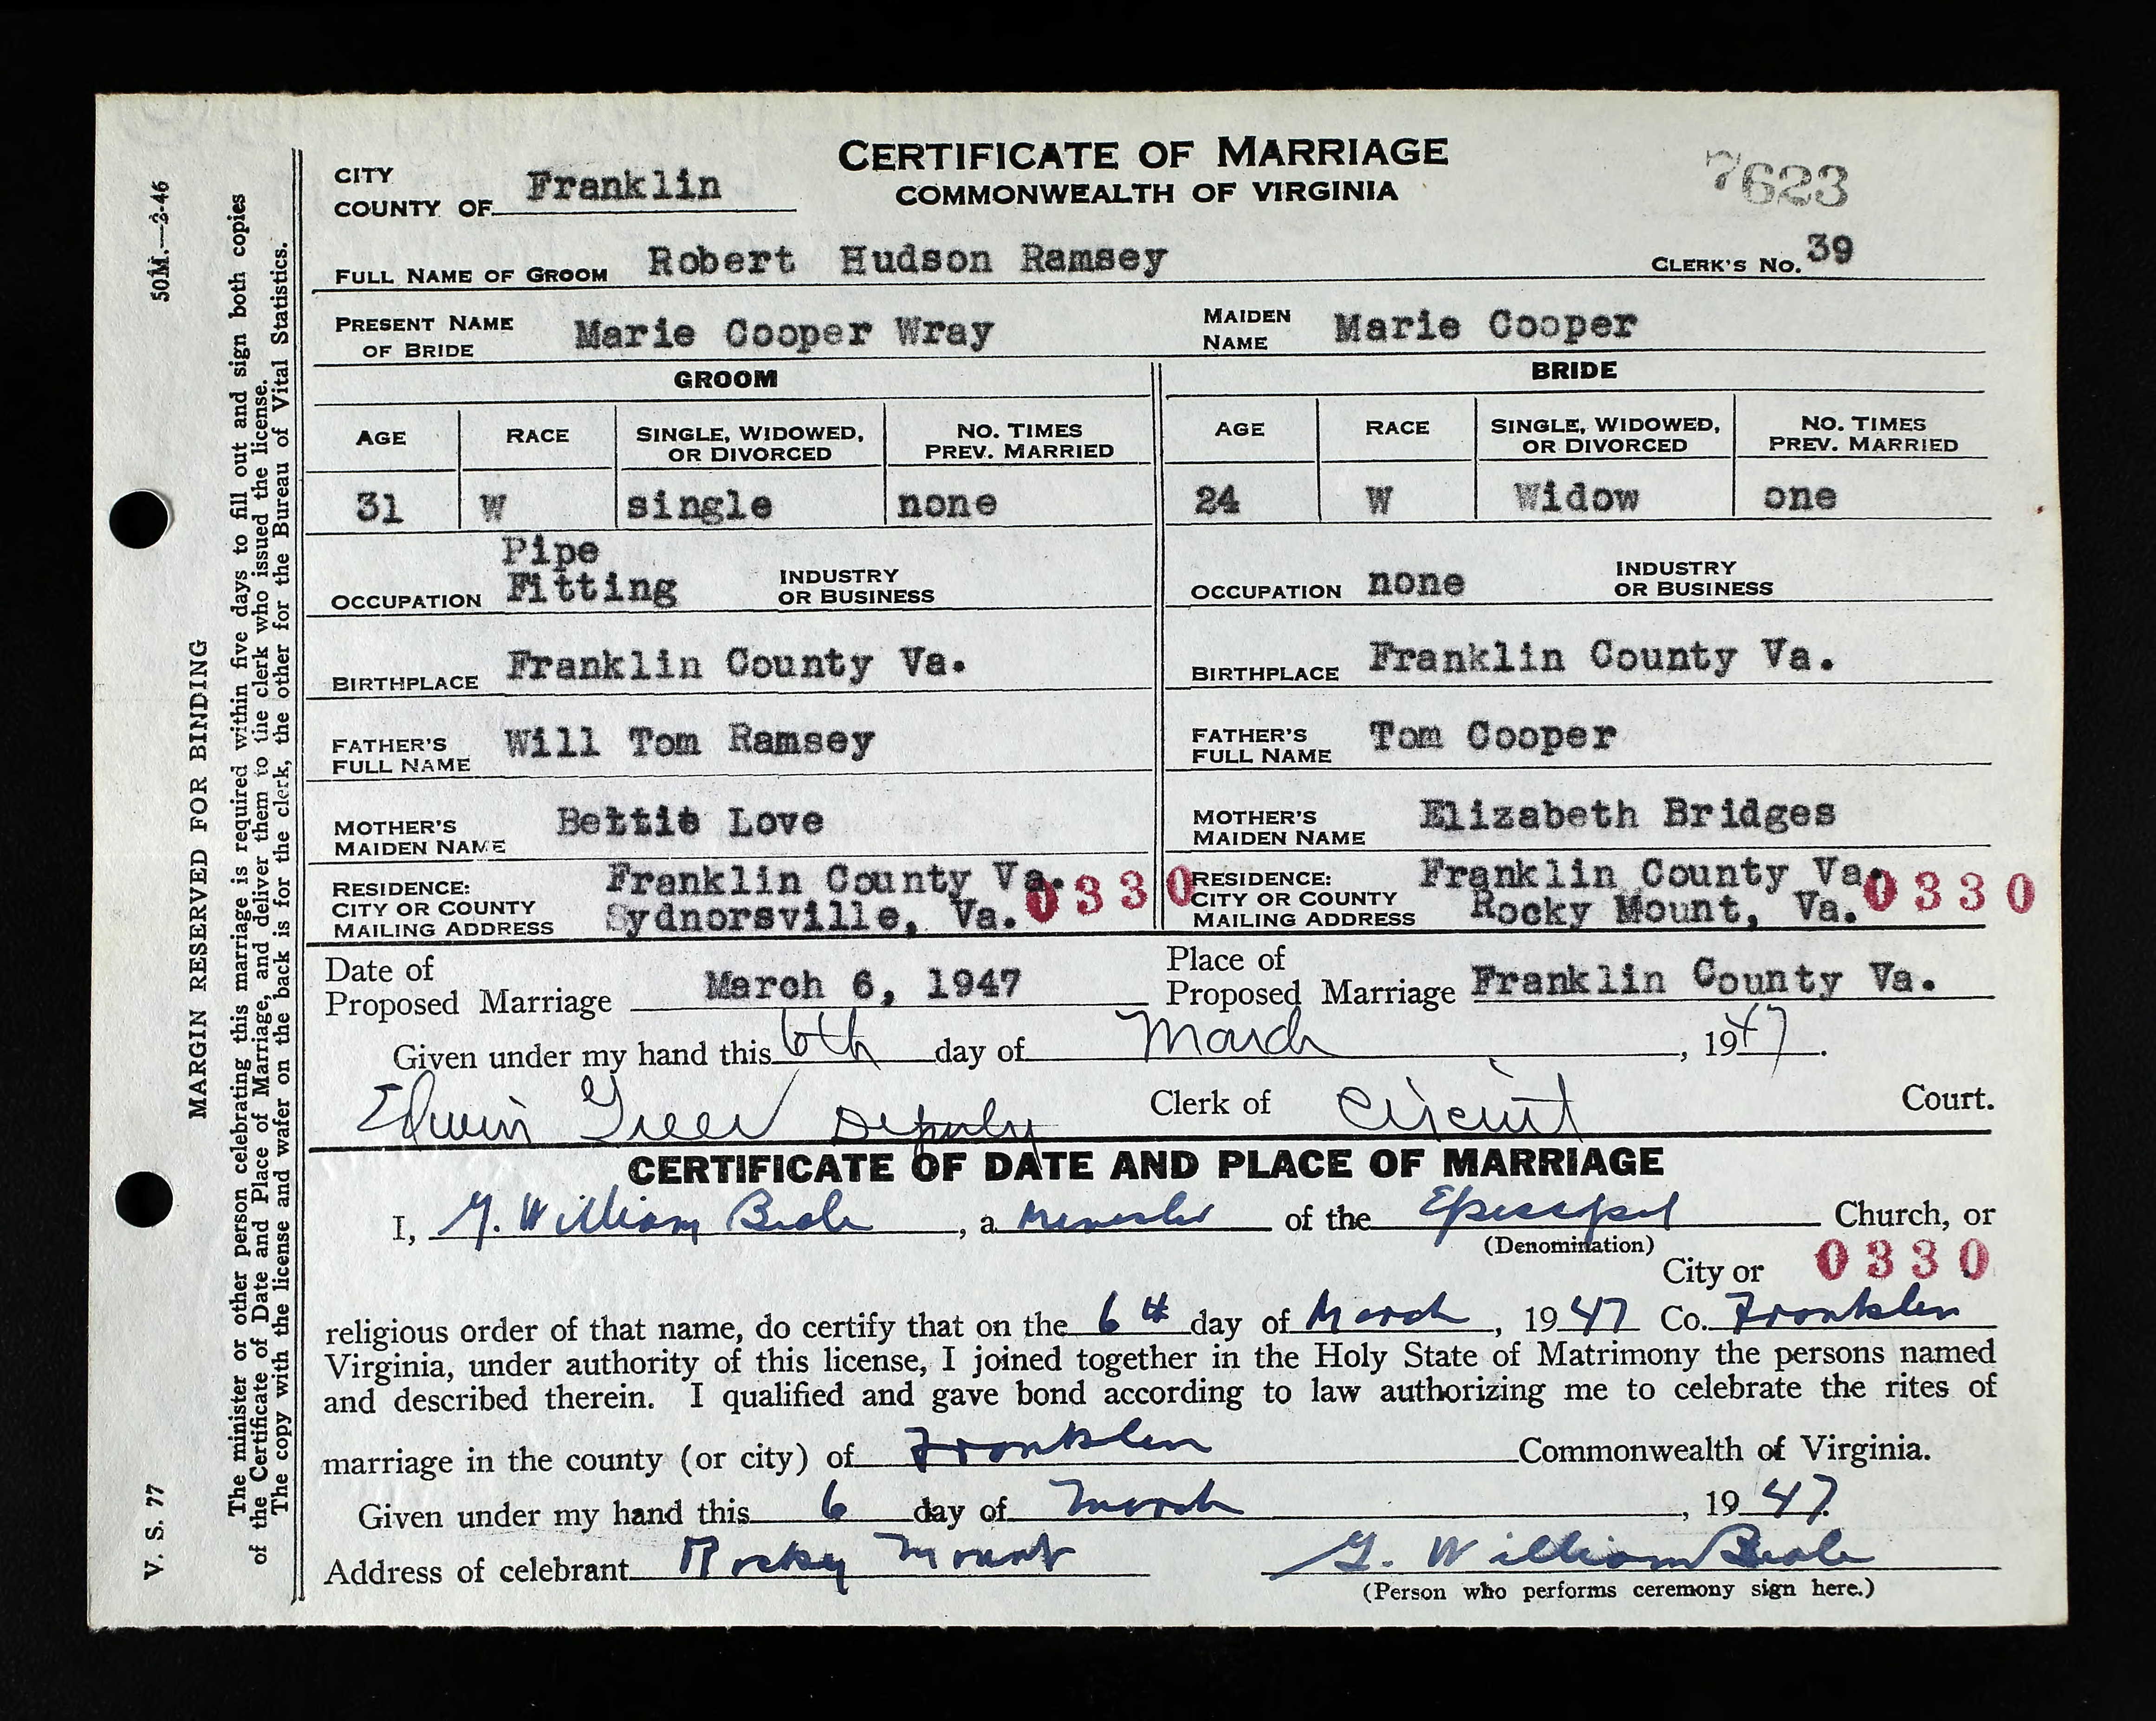 CERTIFICATE OF MARRIAGE
COMMONWEALTH OF VIRGINIA
7623
CITY
COUNTY OF Franklin
FULL NAME OF GROOM Robert Hudson Ramsey CLERK'S NO. 39
PRESENT NAME OF BRIDE Marie Cooper Wray MAIDEN NAME Marie Cooper
GROOM BRIDE
AGE RACE SINGLE, WIDOWED, OR DIVORCED NO. TIMES PREV. MARRIED AGE RACE SINGLE, WIDOWED, OR DIVORCED NO. TIMES PREV. MARRIED
31 W single none 24 W Widow one
OCCUPATION Pipe Fitting INDUSTRY OR BUSINESS OCCUPATION none INDUSTRY OR BUSINESS
BIRTHPLACE Franklin County Va. BIRTHPLACE Franklin County Va.
FATHER'S FULL NAME Will Tom Ramsey FATHER'S FULL NAME Tom Cooper
MOTHER'S MAIDEN NAME Bettie Love MOTHER'S MAIDEN NAME Elizabeth Bridges
RESIDENCE: CITY OR COUNTY MAILING ADDRESS Franklin County Va. Sydnorsville, Va. 0330 RESIDENCE: CITY OR COUNTY MAILING ADDRESS Franklin County Va. Rocky Mount, Va. 0330
Date of Proposed Marriage March 6, 1947 Place of Proposed Marriage Franklin County Va.
Given under my hand this 6th day of March, 1947.
Edwin Greer Deputy Clerk of Circuit Court.
CERTIFICATE OF DATE AND PLACE OF MARRIAGE
I, G. William Beale, a Minister of the Episcopal Church, or
(Denomination)
City or 0330
religious order of that name, do certify that on the 6th day of March, 1947 Co. Franklin
Virginia, under authority of this license, I joined together in the Holy State of Matrimony the persons named
and described therein. I qualified and gave bond according to law authorizing me to celebrate the rites of
marriage in the county (or city) of Franklin Commonwealth of Virginia.
Given under my hand this 6 day of March, 1947.
Address of celebrant Rocky Mount G. William Beale
(Person who performs ceremony sign here.)
V. S. 77 50M.—2-46
MARGIN RESERVED FOR BINDING
The minister or other person celebrating this marriage is required within five days to fill out and sign both copies
of the Certificate of Date and Place of Marriage, and deliver them to the clerk who issued the license.
The copy with the license and wafer on the back is for the clerk, the other for the Bureau of Vital Statistics.